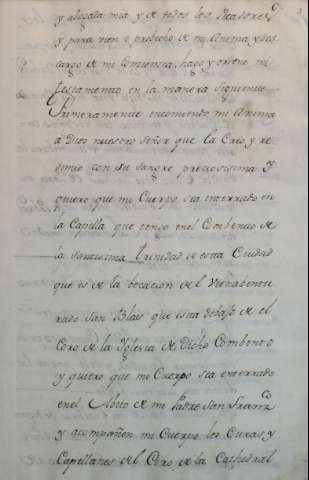 y abogada mia y de todos los Pecadores
y para vien o probecho de mi Anima y des
cargo de mi Conciencia, hago y ordeno mi
testamento en la manera siguiente
Primeramente encomiendo mi Anima
a Dios nuestro Señor que la Crio y re
dimio con su sangre preciosisima Y
quiero que mi Cuerpo sea enterrado en
la Capilla que tengo en el Combento de
la santisima trinidad de esta Ciudad
que es de la bocacion del Vienabentu
rado San Blas que esta debajo de el
Coro de la Yglesia de Dicho Combento
y quiero que mi Cuerpo sea enterrado
en el Abito de mi Padre San Franco
y acompañen mi Cuerpo los Curas y
Capellanes del Coro de la Cathedral